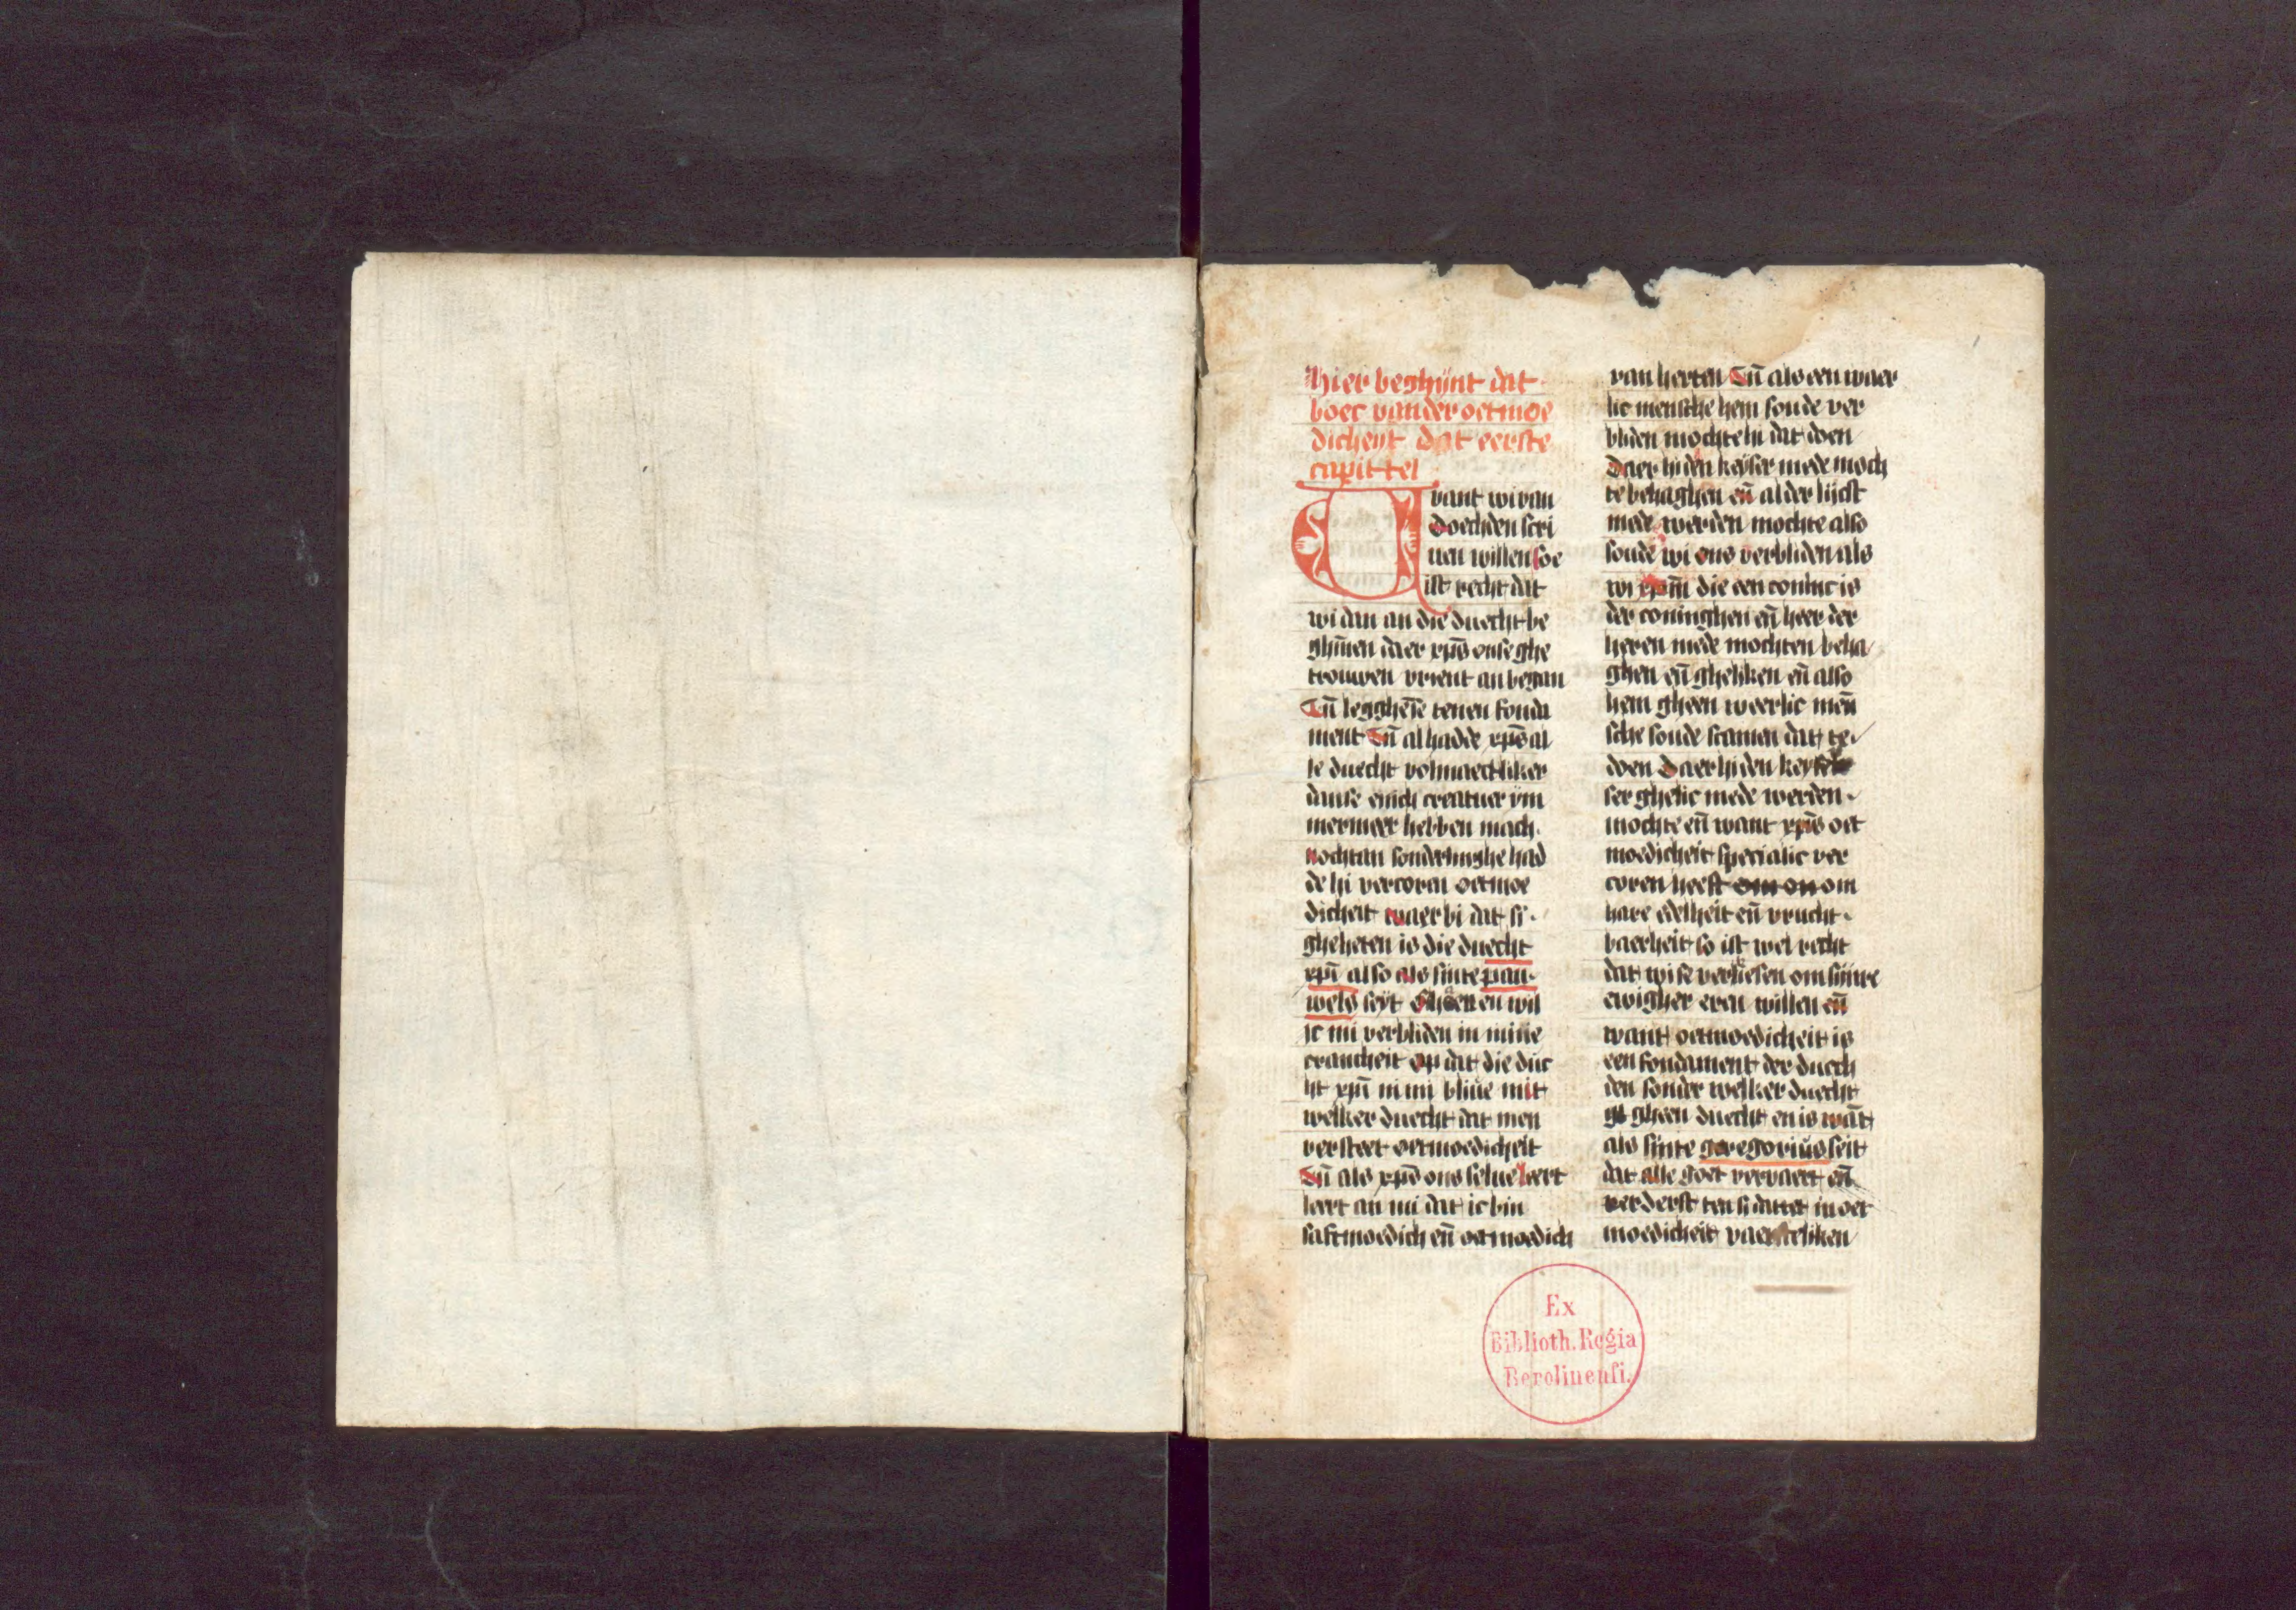 hier beghīnt dat
boec vander oetmoe
dicheyt dat eerste
capittel
vant wi van
doechden scri
uen willen soe
ist recht dat
wi dan an die duecht be
ghīnen daer xp̄s onse ghe
trouwen vrient an began
En̄ legghēse tenen fonda
ment En̄ al hadde xp̄s al
le duecht volmaectliker
danse enich creatuer ȳm
mermeer hebben mach
nochtan sonderlinghe had
de hi vercoren oetmoe
dicheit waer bi dat si
gheheten is die duecht
xp̄i also als sinte pau
wels seyt Gheern en wil
ic mi verbliden in mine
crancheit op dat die due
ht xp̄i in mi bliue mit
welker duecht dat men
versteet oetmoedicheit
En̄ als xp̄s ons selue leert
leert an mi dat ic bin
saftmoedich en̄ oetmoedich
van herten En̄ als een waer
lic mensche hem soude ver
bliden mochte hi dat doen
Daer hi den keyser mede moch
te behaghen en̄ alder lijcst
mede werden mochte also
soude wi ons verbliden als
wi xp̄m die een coninc is
der coninghen en̄ heer der
heren mede mochten beha
ghen en̄ gheliken en̄ also
hem gheen weerlic men̄
sche soude scamen dat te
doen Daer hi den keyser
ser ghelic mede werden
mochte en̄ want xp̄s oet
moedicheit specialic ver
coren heeft om on om
hare edelheit en̄ vrucht
baerheit so ist wel recht
dat wise verkiesen om sijnre
ewigher eren willen en̄
want oetmoedicheit is
een fondament der duech
den sonder welker duecht
gh gheen duecht en is wāt
als sinte gregorius seit
dat alle goet vervaert en̄
verderft ten si dattet in oet
moedicheit vaersteliken
Ex
Biblioth. Regia
Berolinenſi.